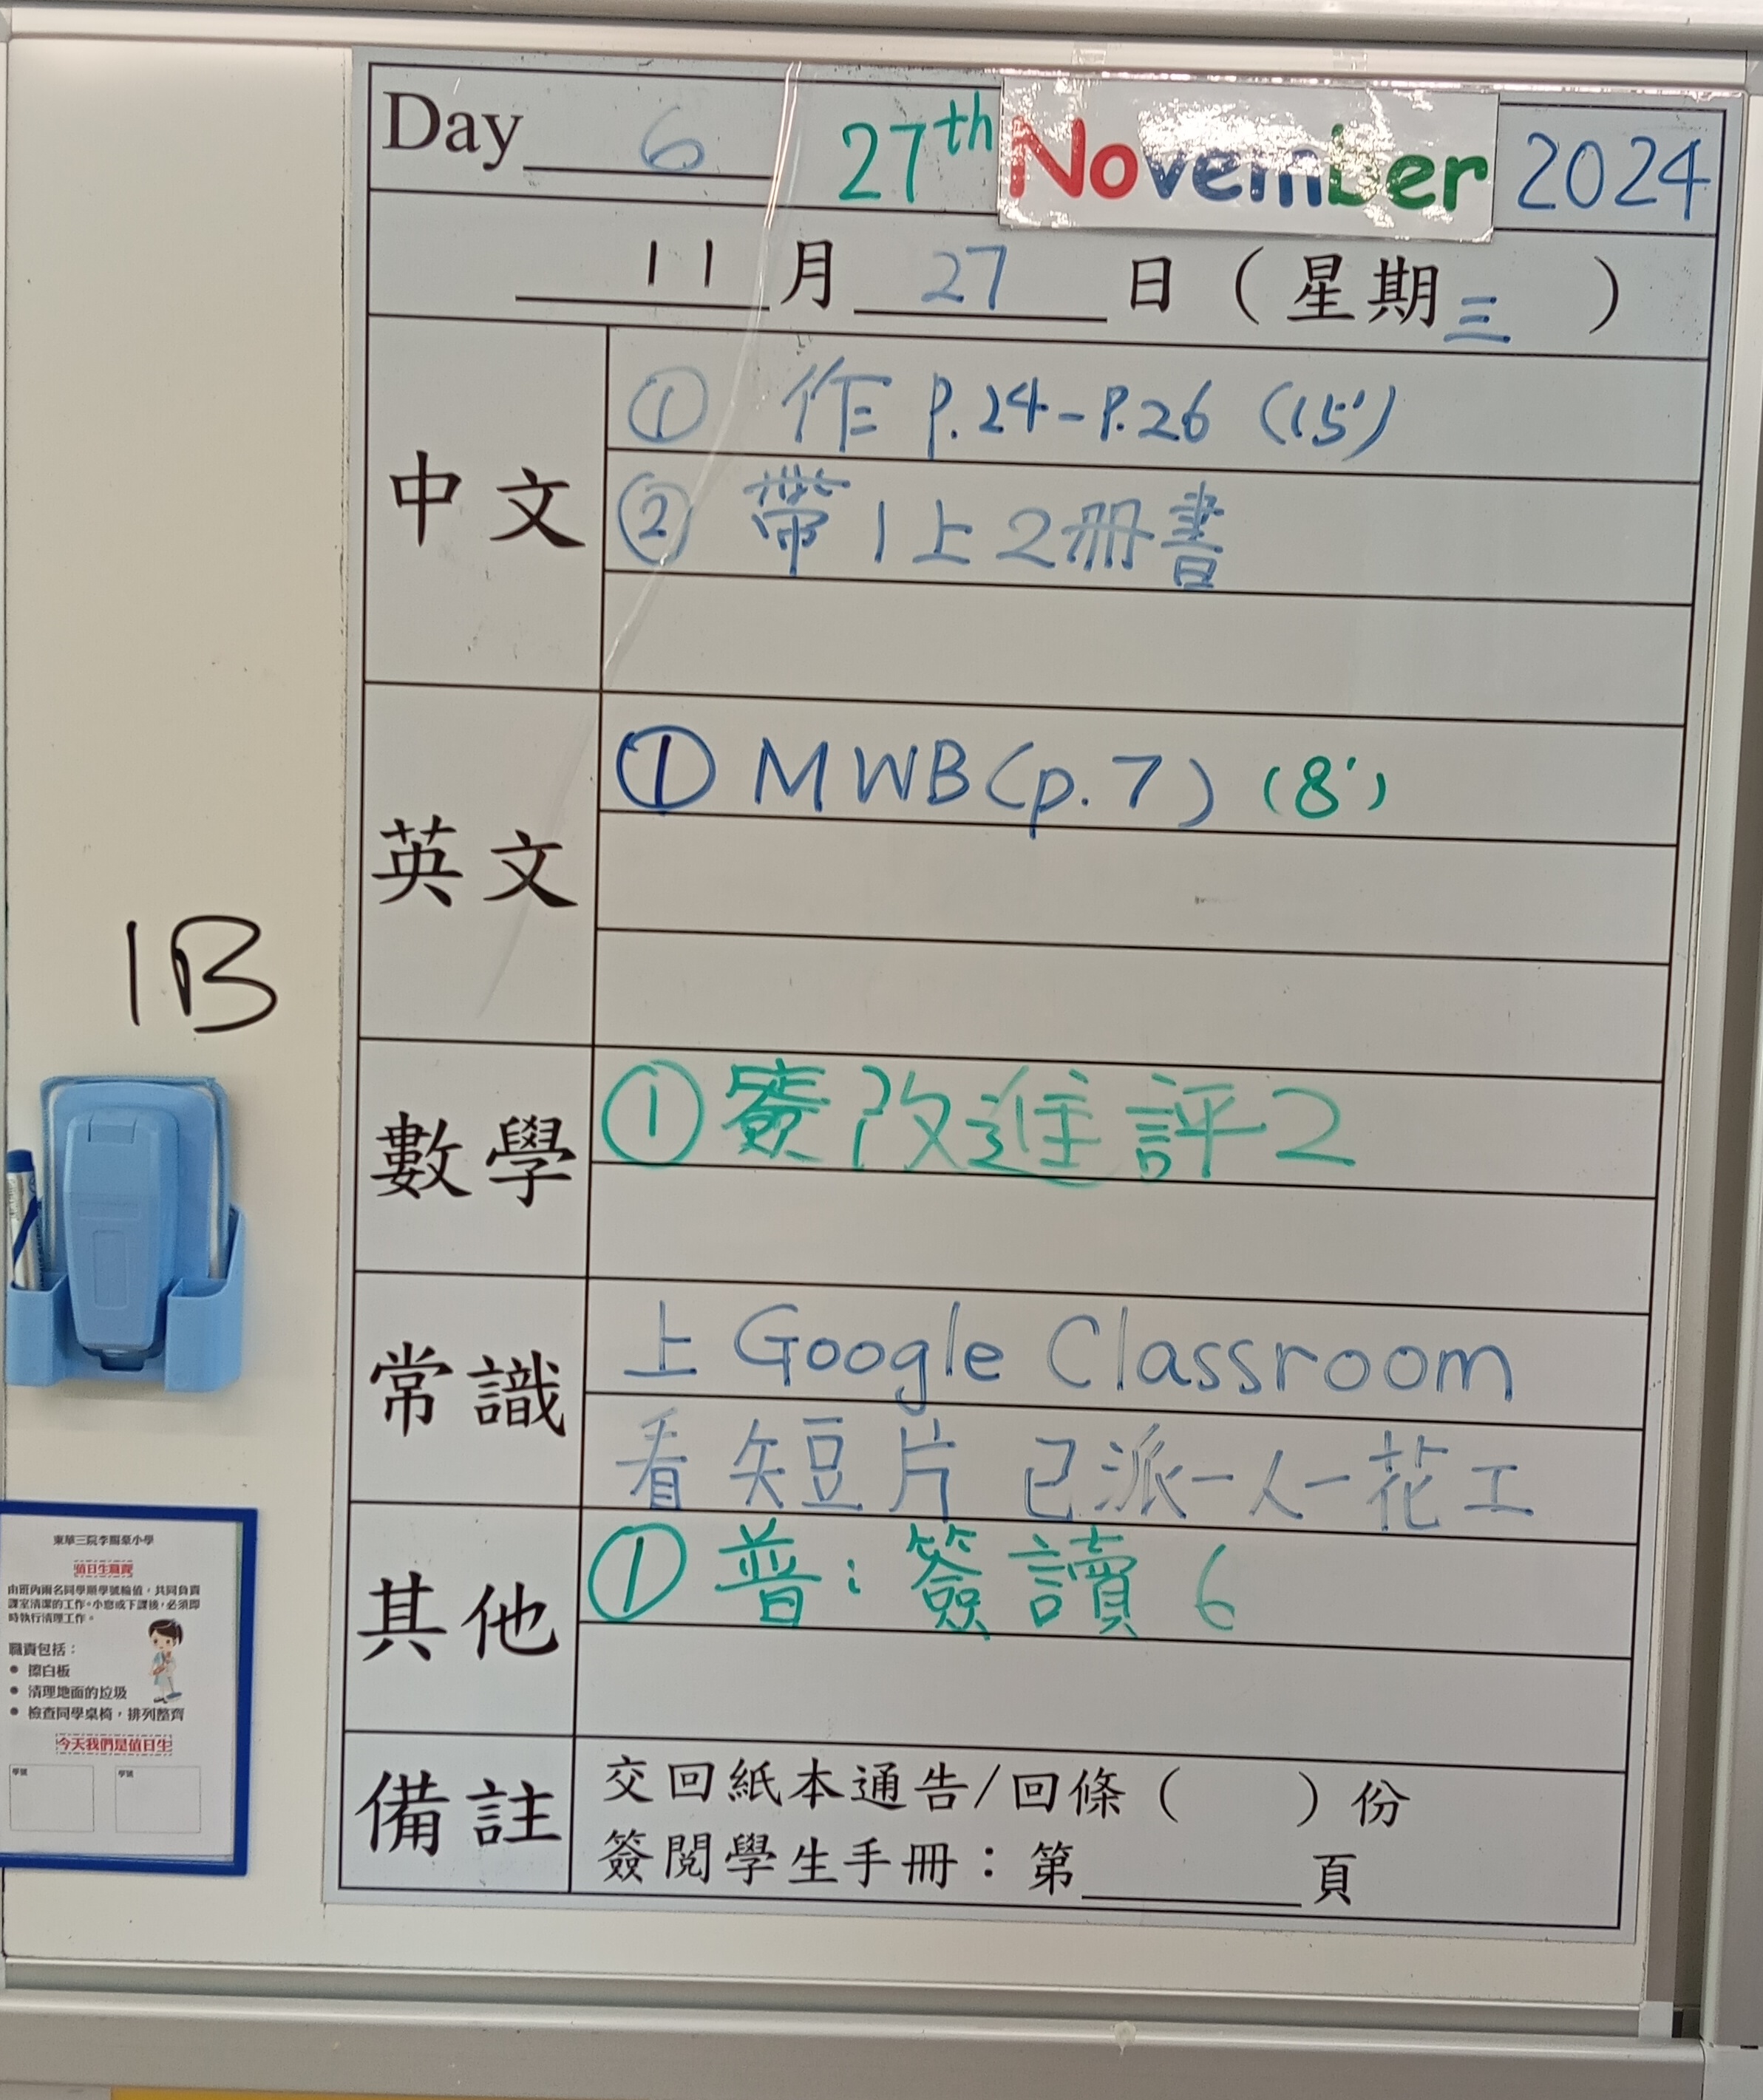 Day 6 27th November 2024
11 月 27 日 ( 星期三 )
中文
① 作 P.24-P.26 (15')
② 帶1上2冊書
英文
① MWB(p.7) (8')
1B
數學
① 簽改進評2
常識
上 Google Classroom
看短片 已派一人一花工
其他
① 普: 簽讀 6
備註
交回紙本通告/回條 ( ) 份
簽閱學生手冊：第______頁
東華三院李賜豪小學
值日生職責
由班內兩名同學順學號輪值，共同負責
課室清潔的工作。小息或下課後，必須即
時執行清理工作。
職責包括：
● 擦白板
● 清理地面的垃圾
● 檢查同學桌椅，排列整齊
今天我們是值日生
學號 學號